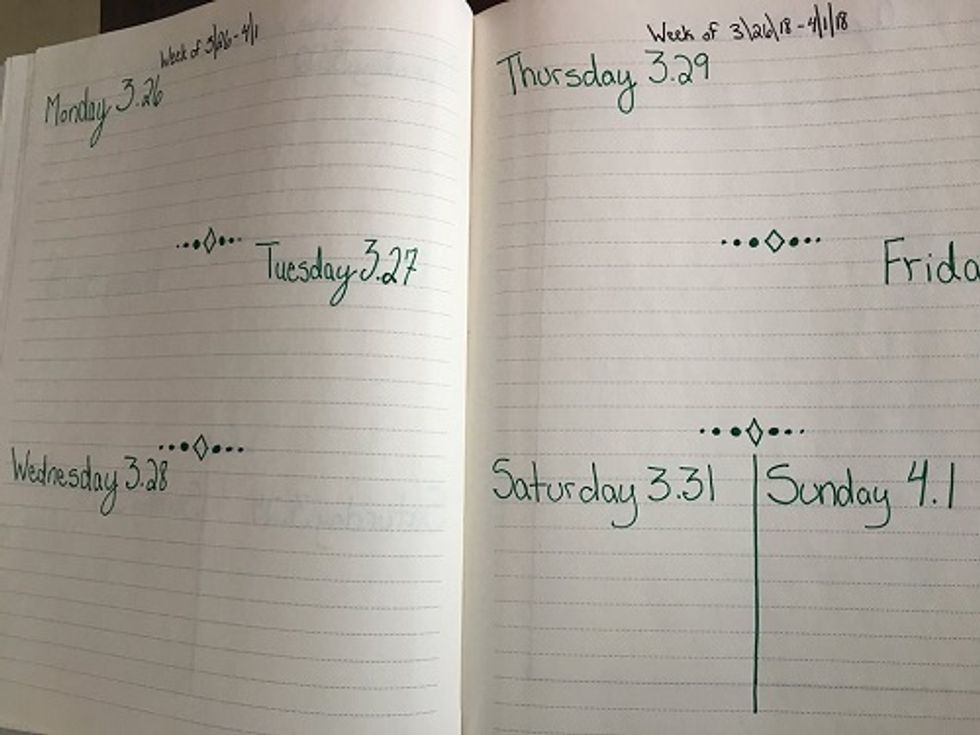 Week of 3/26-4/1
Monday 3.26
Tuesday 3.27
Wednesday 3.28
Week of 3/26/18-4/1/18
Thursday 3.29
Frida
Saturday 3.31
Sunday 4.1